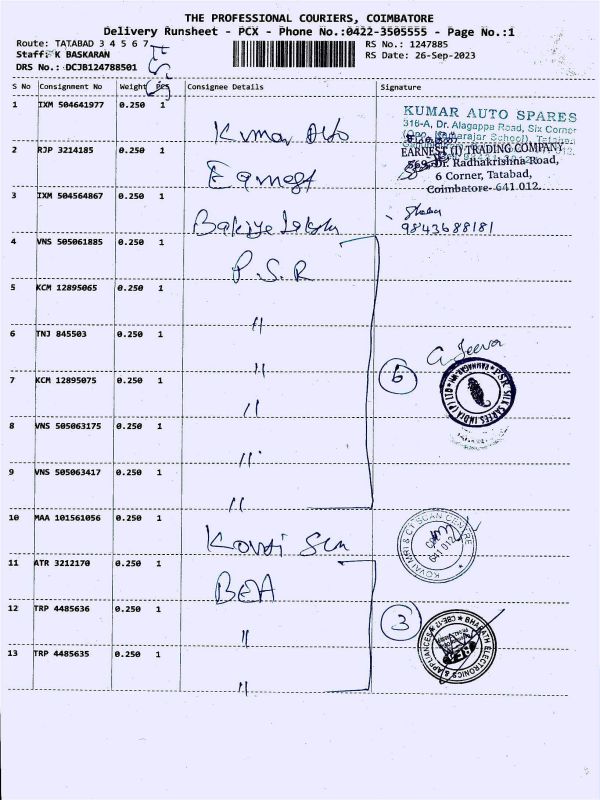 THE PROFESSIONAL COURIERS, COIMBATORE
Delivery Runsheet - PCX - Phone No.:0422-3505555 - Page No.:1
Route: TATABAD 3 4 5 6 7
RS No.: 1247885
Staff: K BASKARAN
RS Date: 26-Sep-2023
DRS No.: DCJB124788501
S No Consignment No Weight PCS Consignee Details Signature
1 IXM 504641977 0.250 1 Kumar Auto
KUMAR AUTO SPARES
316-A, Dr. Alagappa Road, Six Corner
2 RJP 3214185 0.250 1 Earnest
EARNEST (I) TRADING COMPANY
569, Dr. Radhakrishna Road,
6 Corner, Tatabad,
Coimbatore- 641 012.
3 IXM 504564867 0.250 1
9843688181
4 VNS 505061885 0.250 1 P.S.R
5 KCM 12895065 0.250 1 "
6 TNJ 845503 0.250 1 "
G. Jeeva
6
7 KCM 12895075 0.250 1 "
PSR SILK SAREES INDIA (P) LTD
8 VNS 505063175 0.250 1 "
9 VNS 505063417 0.250 1 "
10 MAA 101561056 0.250 1 Kovai Scan
KOVAI MRI & CT SCAN CENTRE
641 012
11 ATR 3212170 0.250 1 BEA
12 TRP 4485636 0.250 1 "
3
BHARATH ELECTRONICS & APPLIANCES * CBE-12 *
BEA
13 TRP 4485635 0.250 1 "